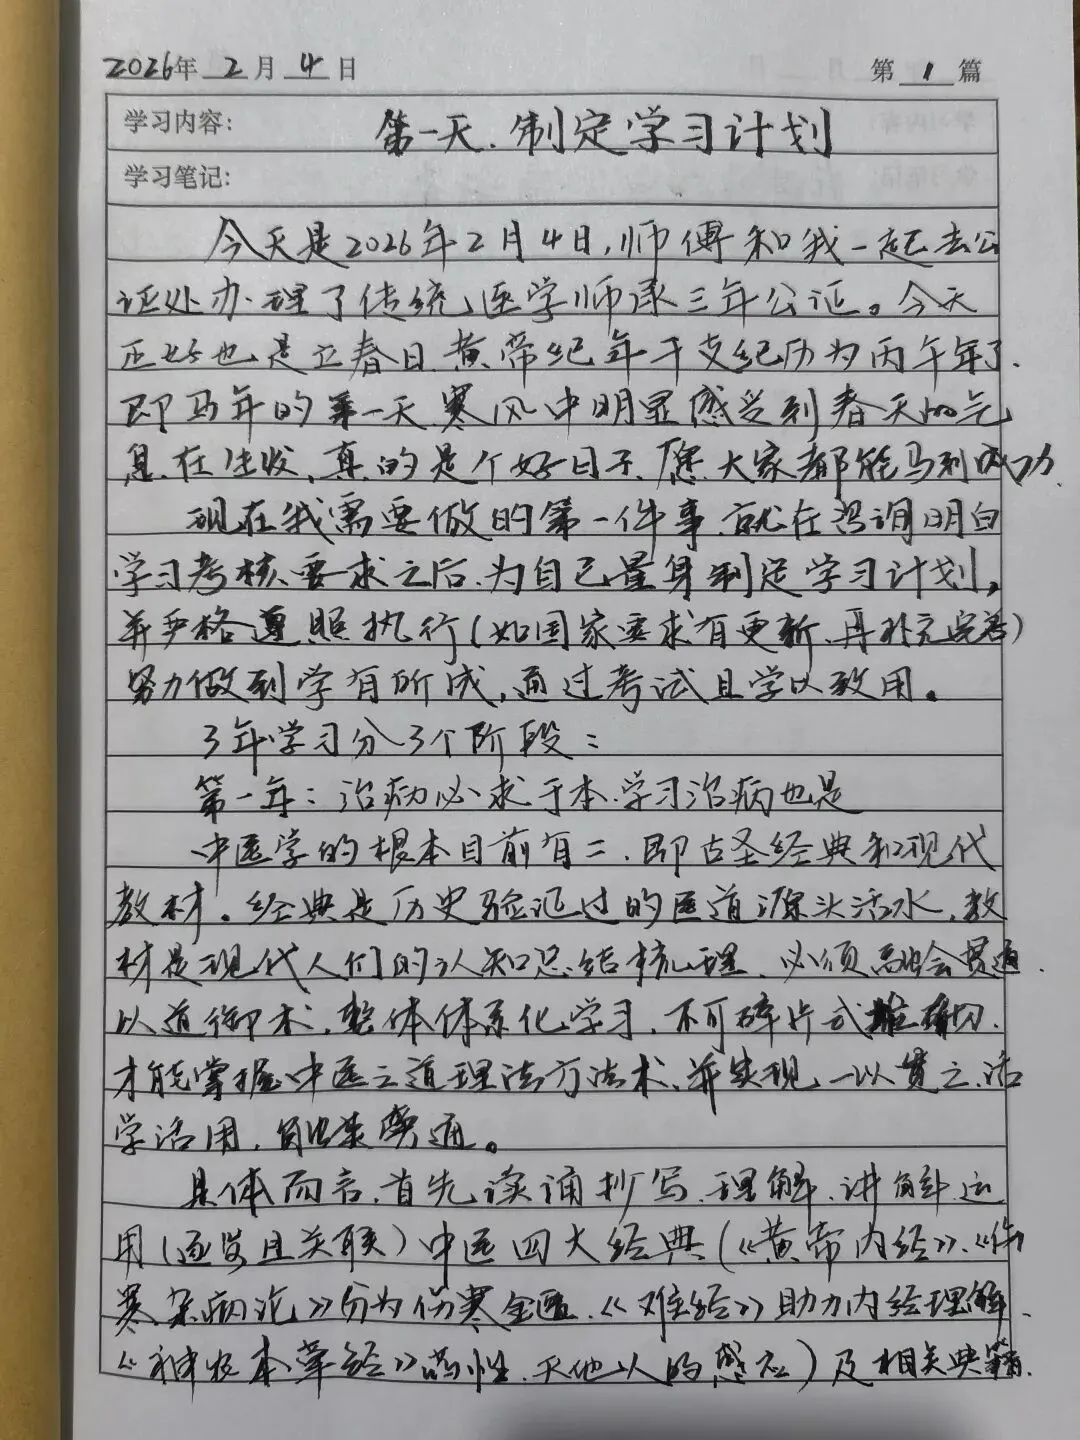 2026年 2 月 4 日 第 1 篇
学习内容: 第一天.制定学习计划
学习笔记:
今天是2026年2月4日,师傅和我一起去公
证处办理了传统医学师承三年公证。今天
正好也是立春日.黄帝纪年干支纪历为丙午年了.
即马年的第一天.寒风中明显感受到春天的气
息.在生发,真的是个好日子.愿大家都能马到成功.
现在我需要做的第一件事.就在咨询明白
学习考核要求之后.为自己量身制定学习计划,
并严格遵照执行(如国家要求有更新.再补充完善)
努力做到学有所成,通过考试且学以致用。
3年学习分3个阶段:
第一年:治病必求于本.学习治病也是
中医学的根本目前有二.即古圣经典和现代
教材。经典是历史验证过的医道源头活水,教
材是现代人们的认知总结梳理.必须融会贯通.
以道御术,整体体系化学习,不可碎片式
才能掌握中医之道理法方法术.并实现一以贯之.活
学活用,融会贯通。
具体而言.首先读诵抄写.理解.讲解.运
用(逐步且关联)中医四大经典(《黄帝内经》.《伤
寒杂病论》分为伤寒金匮.《难经》助力内经理解.
《神农本草经》药性.天地人的感应)及相关典籍.